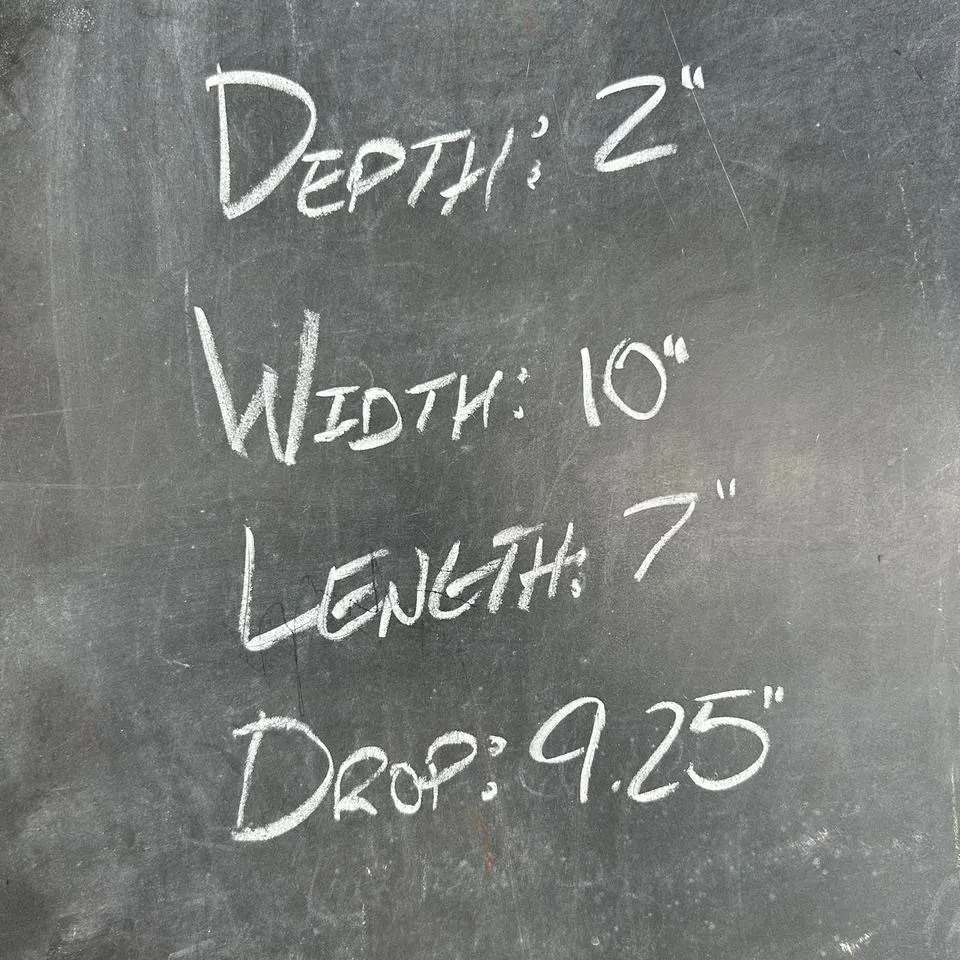 DEPTH: 2"
WIDTH: 10"
LENGTH: 7"
DROP: 9.25"